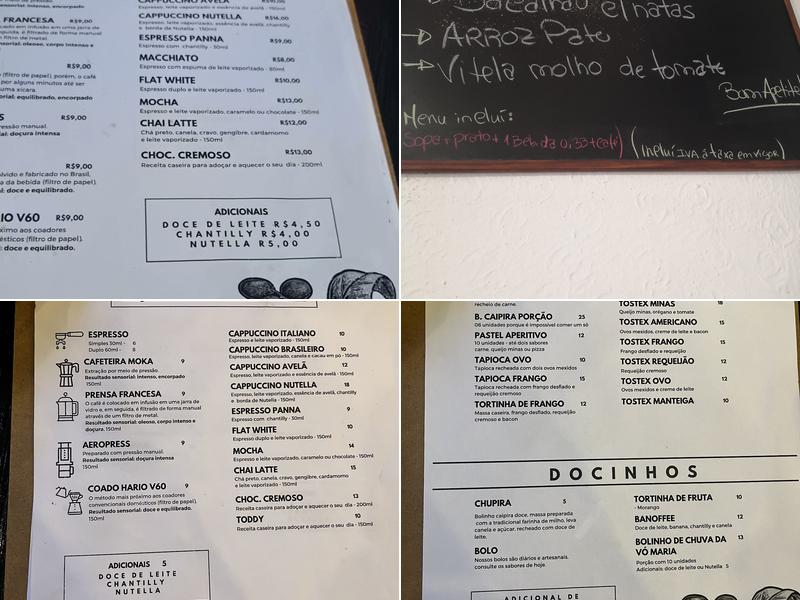 CAPPUCCINO AVELÃ R$10,00
Espresso, leite vaporizado e essência de avelã - 150ml
CAPPUCCINO NUTELLA R$16,00
Espresso, leite vaporizado, essência de avelã, chantilly
e borda de Nutella - 150ml
ESPRESSO PANNA R$9,00
Espresso com chantilly - 50ml
MACCHIATO R$8,00
Espresso com espuma de leite vaporizado - 80ml
FLAT WHITE R$10,00
Espresso duplo e leite vaporizado - 150ml
MOCHA R$13,00
Espresso e leite vaporizado, caramelo ou chocolate - 150ml
CHAI LATTE R$12,00
Chá preto, canela, cravo, gengibre, cardamomo
e leite vaporizado - 150ml
CHOC. CREMOSO R$13,00
Receita caseira para adoçar e aquecer o seu dia - 200ml
FRANCESA R$9,00
cado em infusão em uma jarra de
é filtrado de forma manual
de metal.
sorial: oleoso, corpo intenso e
R$9,00
(filtro de papel). porém, o café
por alguns minutos até ser
ial: equilibrado, encorpado
S R$9,00
ressão manual.
al: doçura intensa
R$9,00
lvido e fabricado no Brasil,
a da bebida (filtro de papel).
l: doce e equilibrado.
IO V60 R$9,00
ximo aos coadores
ésticos (filtro de papel).
: doce e equilibrado.
ADICIONAIS
DOCE DE LEITE R$4,50
CHANTILLY R$4,00
NUTELLA R5,00
Bacalhau c/ natas
→ ARROZ Pato
→ Vitela molho de tomate
Bom Apetite
Menu inclui:
Sopa + prato + 1 Bebida 0,33 + café) (incluí IVA á taxa em vigor)
ESPRESSO
Simples 30ml - 6
Duplo 60ml - 8
CAFETEIRA MOKA 9
Extração por meio de pressão.
Resultado sensorial: intenso, encorpado
150ml
PRENSA FRANCESA 9
O café é colocado em infusão em uma jarra de
vidro e, em seguida, é filtrado de forma manual
através de um filtro de metal.
Resultado sensorial: oleoso, corpo intenso e
doçura. 150ml
AEROPRESS 9
Preparado com pressão manual.
Resultado sensorial: doçura intensa
150ml
COADO HARIO V60 9
O método mais próximo aos coadores
convencionais domésticos (filtro de papel).
Resultado sensorial: doce e equilibrado.
150ml
CAPPUCCINO ITALIANO 10
Espresso e leite vaporizado - 150ml
CAPPUCCINO BRASILEIRO 10
Espresso, leite vaporizado, canela e cacau em pó - 150ml
CAPPUCCINO AVELÃ 12
Espresso, leite vaporizado e essência de avelã - 150ml
CAPPUCCINO NUTELLA 18
Espresso, leite vaporizado, essência de avelã, chantilly
e borda de Nutella - 150ml
ESPRESSO PANNA 9
Espresso com chantilly - 50ml
FLAT WHITE 10
Espresso duplo e leite vaporizado - 150ml
MOCHA 14
Espresso e leite vaporizado, caramelo ou chocolate - 150ml
CHAI LATTE 15
Chá preto, canela, cravo, gengibre, cardamomo
e leite vaporizado - 150ml
CHOC. CREMOSO 13
Receita caseira para adoçar e aquecer o seu dia - 200ml
TODDY 10
Receita caseira para adoçar e aquecer o seu dia - 150ml
ADICIONAIS 5
DOCE DE LEITE
CHANTILLY
NUTELLA
recheio de carne.
B. CAIPIRA PORÇÃO 25
06 unidades porque é impossível comer um só
PASTEL APERITIVO 12
10 unidades - até dois sabores
carne, queijo minas ou pizza
TAPIOCA OVO 10
Tapioca recheada com dois ovos mexidos
TAPIOCA FRANGO 15
Tapioca recheada com frango desfiado e
requeijão cremoso
TORTINHA DE FRANGO 12
Massa caseira, frango desfiado, requeijão
cremoso e bacon
TOSTEX MINAS 18
Queijo minas, orégano e tomate
TOSTEX AMERICANO 15
Ovos mexidos, creme de leite e bacon
TOSTEX FRANGO 15
Frango desfiado e requeijão
TOSTEX REQUEIJÃO 12
Requeijão cremoso
TOSTEX OVO 12
Ovos mexidos e creme de leite
TOSTEX MANTEIGA 10
DOCINHOS
CHUPIRA 5
Bolinho caipira doce, massa preparada
com a tradicional farinha de milho, leva
canela e açúcar, recheado com doce de
leite.
BOLO
Nossos bolos são diários e artesanais.
consulte os sabores de hoje.
TORTINHA DE FRUTA 10
- Morango
BANOFFEE 12
Doce de leite, banana, chantilly e canela
BOLINHO DE CHUVA DA 13
VÓ MARIA
Porção com 10 unidades
Adicionais doce de leite ou Nutella 5
ADICIONAL DE